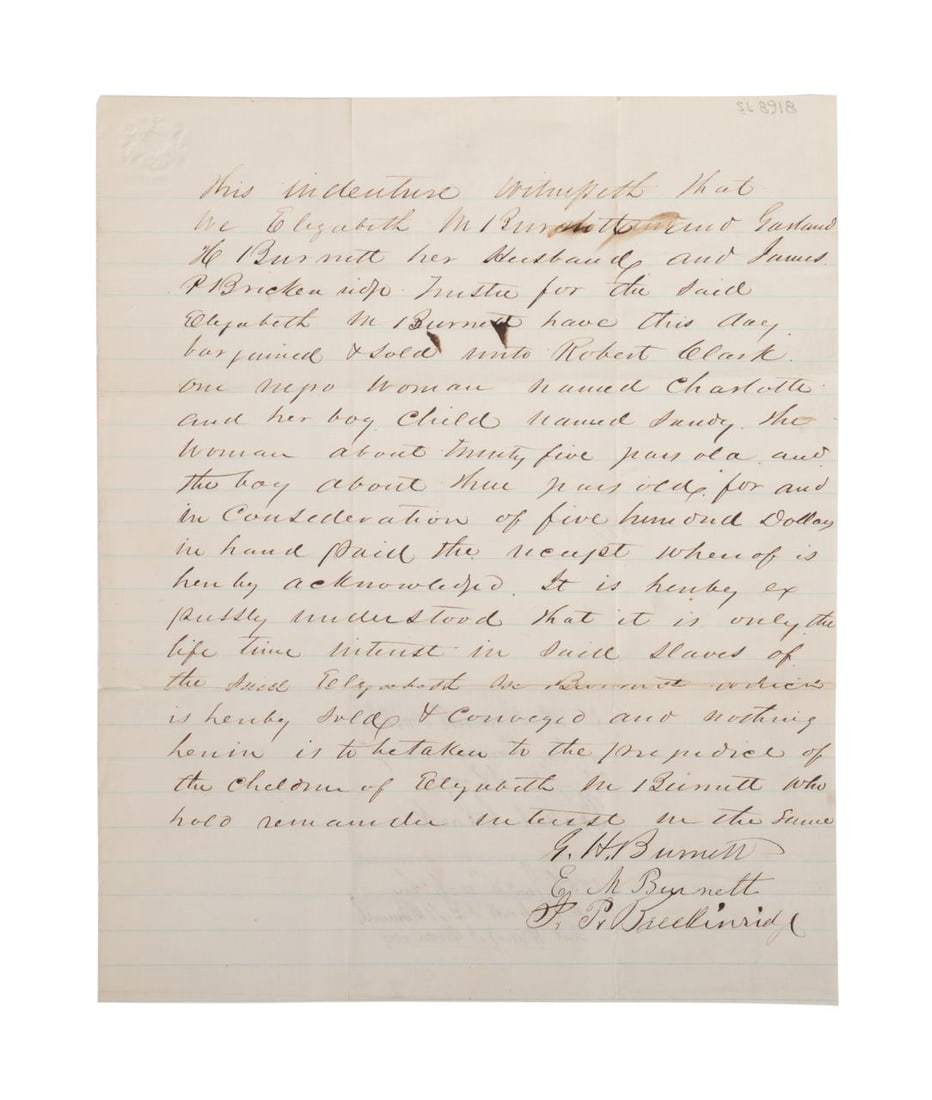 SL 8918
This indenture Witnesseth that
We Elizabeth M Burnett and Garland
H Burnett her Husband and James
P Brickenridge Trustee for the said
Elizabeth M Burnett have this day
bargained & sold unto Robert Clark
one negro Woman named Charlotte
and her boy Child named Sandy the
Woman about twenty five years old and
the boy about three years old for and
in Consideration of five hundred Dollars
in hand paid the receipt whereof is
hereby acknowledged. It is hereby ex
pressly understood that it is only the
life time interest in said slaves of
the said Elizabeth M Burnett which
is hereby sold & Conveyed and nothing
herein is to be taken to the prejudice of
the children of Elizabeth M Burnett who
hold remainder interest in the same
G. H. Burnett
E M Burnett
J. P. Breckinridge